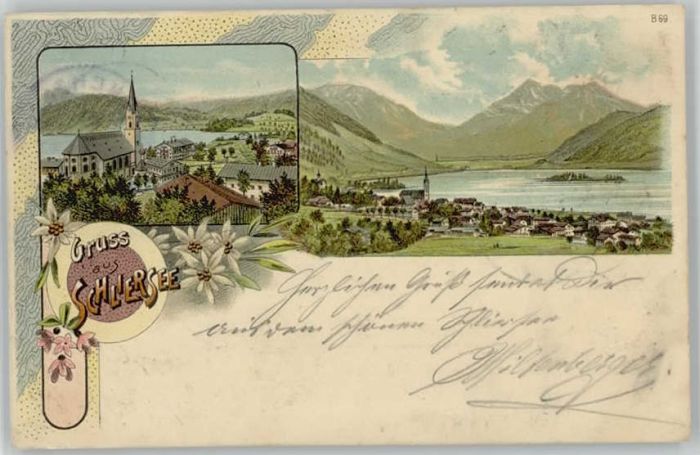 B 69
Gruss
aus
SCHLIERSEE
Herzlichen Gruß sendet Dir
aus dem schönen Schliersee
Miltenberger